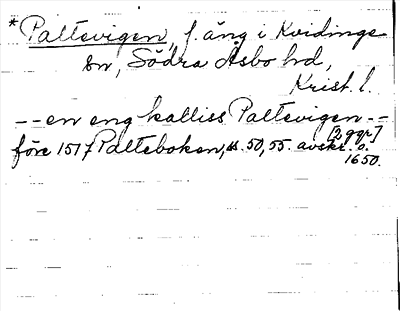 *Paltevigen, f. äng i Kvidinge
sn, Södra Åsbo hd,
Krist. l.
-- en eng kalliss Paltevigen --
[2 ggr]
före 1517 Palteboken, ss. 50, 55. avskr. o.
1650.